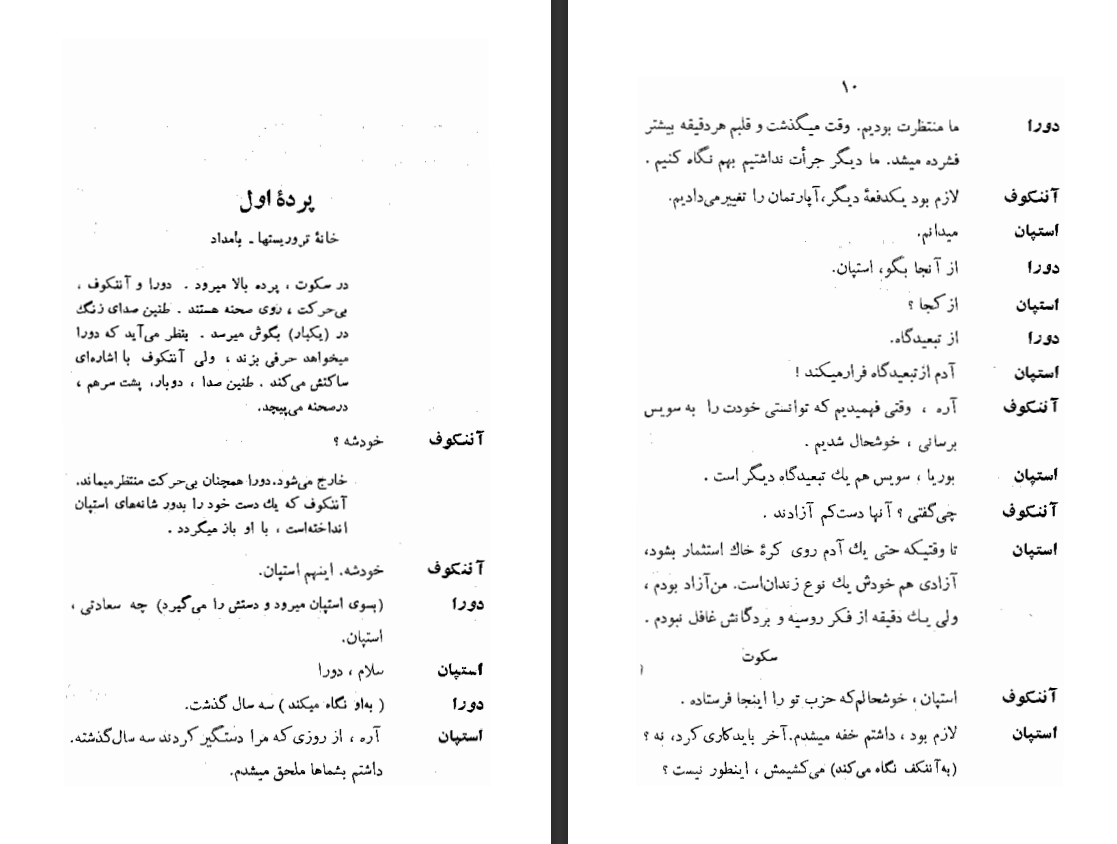 پردهٔ اول
خانهٔ تروریستها ـ بامداد
در سکوت ، پرده بالا میرود . دورا و آننکوف ،
بی‌حرکت ، روی صحنه هستند . طنین صدای زنگ
در (یکبار) بگوش میرسد . بنظر می‌آید که دورا
میخواهد حرفی بزند ، ولی آننکوف با اشاره‌ای
ساکتش می‌کند . طنین صدا ، دوبار، پشت سرهم ،
درصحنه می‌پیچد.
آننکوف خودشه ؟
خارج می‌شود.دورا همچنان بی‌حرکت منتظرمیماند.
آننکوف که یك دست خود را بدور شانه‌های استپان
انداخته‌است ، با او باز میگردد .
آننکوف خودشه. اینهم استپان.
دورا (بسوی استپان میرود و دستش را می‌گیرد) چه سعادتی ،
استپان.
استپان سلام ، دورا
دورا ( به‌او نگاه میکند ) سه سال گذشت.
استپان آره ، از روزی که مرا دستگیر کردند سه سال‌گذشته.
داشتم بشماها ملحق میشدم.
۱۰
دورا ما منتظرت بودیم. وقت میگذشت و قلبم هردقیقه بیشتر
فشرده میشد. ما دیگر جرأت نداشتیم بهم نگاه کنیم .
آننکوف لازم بود یکدفعهٔ دیگر،آپارتمان را تغییرمی‌دادیم.
استپان میدانم.
دورا از آنجا بگو، استپان.
استپان از کجا ؟
دورا از تبعیدگاه.
استپان آدم ازتبعیدگاه فرارمیکند !
آننکوف آره ، وقتی فهمیدیم که توانستی خودت را به سویس
برسانی ، خوشحال شدیم .
استپان بوریا ، سویس هم یك تبعیدگاه دیگر است .
آننکوف چی‌گفتی ؟ آنها دست‌کم آزادند .
استپان تا وقتیکه حتی یك آدم روی کرهٔ خاك استثمار بشود،
آزادی هم خودش یك نوع زندان‌است. من‌آزاد بودم ،
ولی یك دقیقه از فکر روسیه و بردگانش غافل نبودم .
سکوت
آننکوف استپان ، خوشحالم‌که حزب تو را اینجا فرستاده .
استپان لازم بود ، داشتم خفه میشدم.آخر بایدکاری کرد، نه ؟
(به‌آننکف نگاه می‌کند) می‌کشیمش ، اینطور نیست ؟